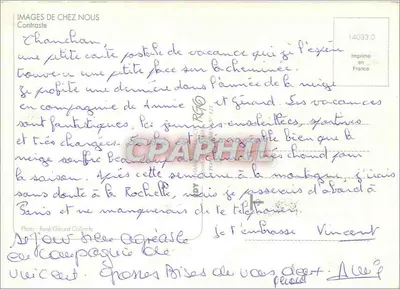 IMAGES DE CHEZ NOUS
Contraste
14033.0
Imprimé
en
France
Chanchan,
une petite carte postale de vacance qui je l'espère
trouvera une petite place sur la cheminée.
Je profite une dernière dans l'année de la neige
en compagnie de et Gérard. Les vacances
sont fantastiques. les journées ensoleillées, sportives
et très chargées. bien que la
neige souffre chaud pour
la saison. Après cette semaine à la montagne, j'irais
sans doute à la Rochelle, mais je passerais d'abord à
Paris et ne manquerais de te téléphoner.
Je t'embrasse Vincent
CPAPHIL
Photo : René-Gérard
séjour bien agréable
en compagnie de
Vincent. Grosses Bises de vous deux.
Gérard